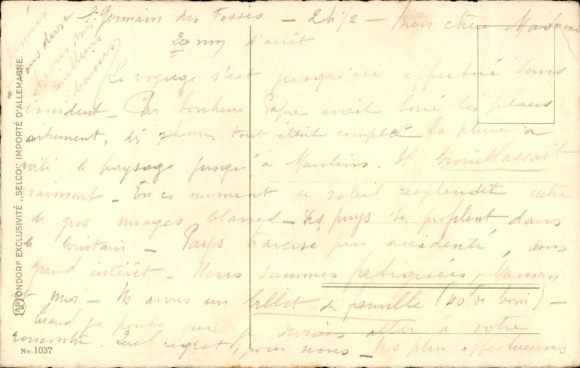 St Germain des Fossés - 2h 1/2 - Mon cher Mad
20 mn d'arrêt
Le voyage s'est jusqu'ici effectué sans
incident - Par bonheur Papa avait loué les places
autrement, tout était complet - La pluie a
le paysage jusqu'à Moulins. Il brouillassait
vraiment - En ce moment un soleil resplendit entre
de gros nuages blancs - Les puys se profilent dans
le lointain - Pays traversé peu accidenté, sans
grand intérêt - Nous sommes fatiguées, Maman
et moi - Ns avons un billet de famille (40% de boni) -
Quand je pense que je devais aller à votre
rencontre. Quel regret, pour nous - Nos plus affectueuses
meilleurs
baisers
ONDORF EXCLUSIVITÉ „SELCO", IMPORTÉ D'ALLEMAGNE
No. 1037